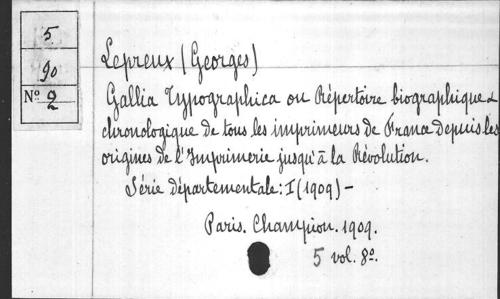 5
90
Nº 2
Lepreux (Georges)
Gallia Typographica ou Répertoire biographique &
chronologique de tous les imprimeurs de France depuis les
origines de l'Imprimerie jusqu'à la Révolution.
Série départementale: I (1909) -
Paris. Champion. 1909.
5 vol. 8º.